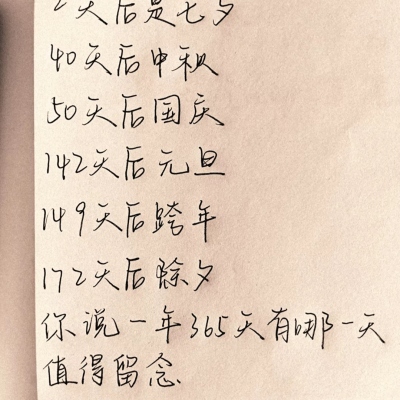 天后是七夕
40天后中秋
50天后国庆
142天后元旦
149天后跨年
172天后除夕
你说一年365天有哪一天
值得留念.